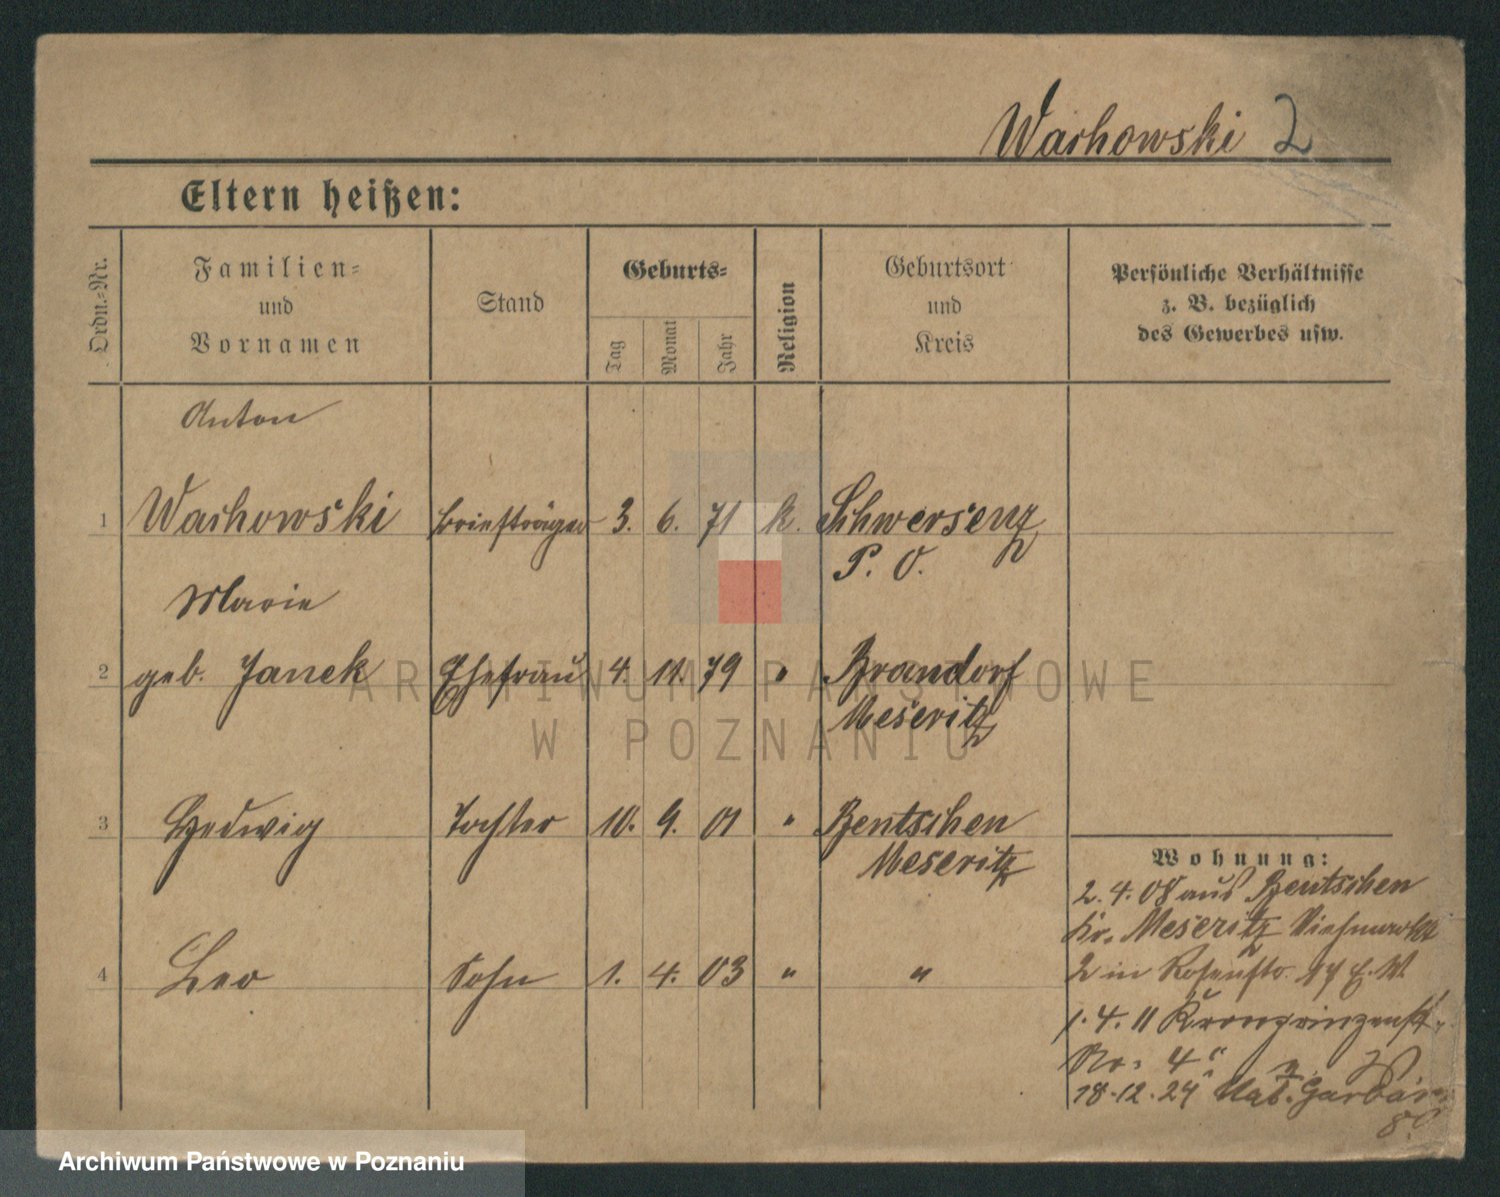 Wachowski 2
Eltern heißen:
Ordn.-Nr.
Familien- und Vornamen
Stand
Geburts-
Tag
Monat
Jahr
Religion
Geburtsort und Kreis
Persönliche Verhältnisse
z. B. bezüglich
des Gewerbes usw.
Anton
1 Wachowski Briefträger 3. 6. 71 k. Schwersenz
P. O.
Marie
2 geb. Janek Ehefrau 4. 11. 79 " Brandorf
Meseritz
3 Hedwig Tochter 10. 9. 01 " Bentschen
Meseritz
4 Leo Sohn 1. 4. 03 " "
Wohnung:
2. 4. 08 aus Bentschen
Kr. Meseritz Viehmarkt
2 in Rosenstr. 14 E. W.
1. 4. 11 Kronprinzenst.
No. 4
18.12.24 Garbar
8.
ARCHIWUM PAŃSTWOWE
W POZNANIU
Archiwum Państwowe w Poznaniu